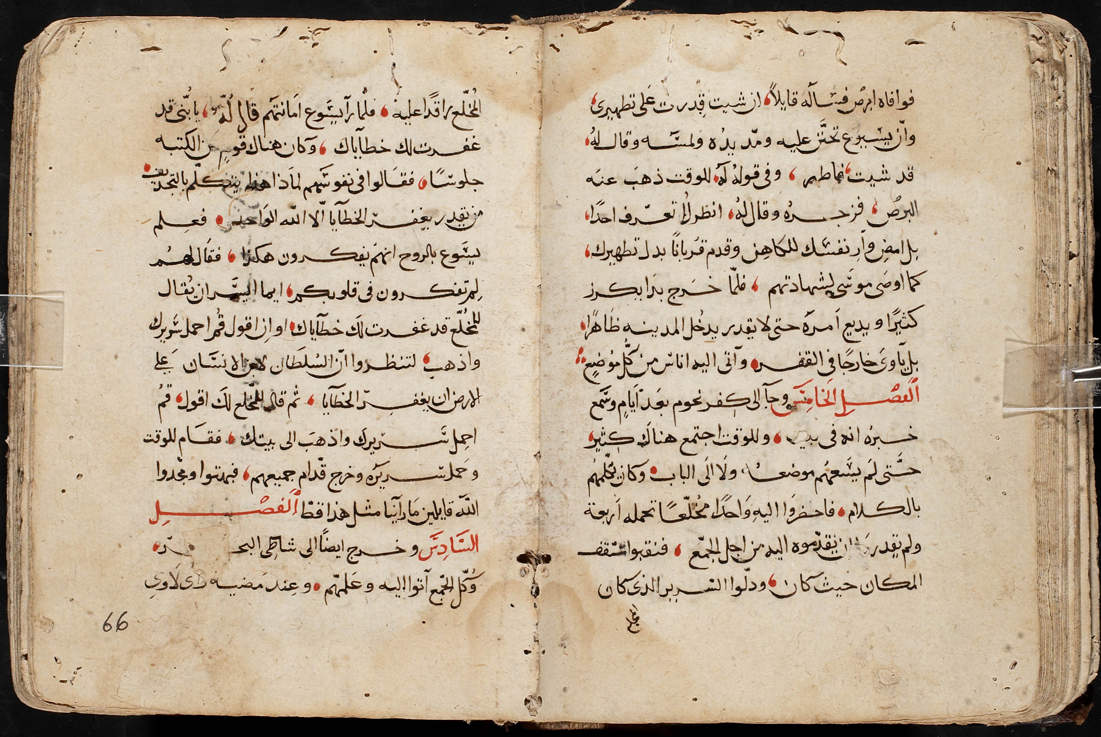 فوافاه ابرص فساله قايلاً، ان شيت قدرت على تطهيري،
وان يسوع تحنن عليه ومد يده ولمسه وقال له،
قد شيت فاطهر، وفي قوله له للوقت ذهب عنه
البرص، فزجره وقال له، انظر لا تعرف احدًا،
بل امض وار نفسك للكاهن وقدم قربانًا بدل تطهيرك،
كما اوصى موسى لشهادتهم، فلما خرج بدا يكرز
كثيرًا ويذيع امره حتى لا يقدر يدخل المدينه ظاهرًا،
بل ياوي خارجًا في القفر، واتى اليه اناس من كل موضع
الفصل الخامس وجا الى كفرنحوم بعد ايام وسمع
خبره انه في بيت، وللوقت اجتمع هناك كثير
حتى لم يسعهم موضعًا، ولا الى الباب، وكان يكلمهم
بالكلام، فاحضروا اليه واحدًا مخلعًا تحمله اربعة
ولم يقدروا ان يقدموه اليه من اجل الجمع، فنقبوا سقف
المكان حيث كان، ودلوا السرير الذي كان
المخلع راقدًا عليه، فلما راى يسوع امانتهم قال له، يا بني قد
غفرت لك خطاياك، وكان هناك قوم من الكتبه
جلوسًا، فقالوا في نفوسهم لماذا هذا يتكلم بالتجديف
من يقدر يغفر الخطايا الا الله الواحد، فعلم
يسوع بالروح انهم يفكرون هكذا، فقال لهم
لم تفكرون في قلوبكم، ايما ايسر ان يقال
للمخلع قد غفرت لك خطاياك، او ان اقول قم احمل سريرك
واذهب، لتنظروا ان السلطان لابن الانسان على
الارض ان يغفر الخطايا، ثم قال للمخلع لك اقول، قم
احمل سريرك واذهب الى بيتك، فقام للوقت
وحمل سريره وخرج قدام جميعهم، فبهتوا ومجدوا
الله قايلين ما راينا مثل هذا قط الفصل
السادس وخرج ايضًا الى شاطى البحر
وكل الجمع اتوا اليه وعلمهم، وعند مضيه راى لاوي
66